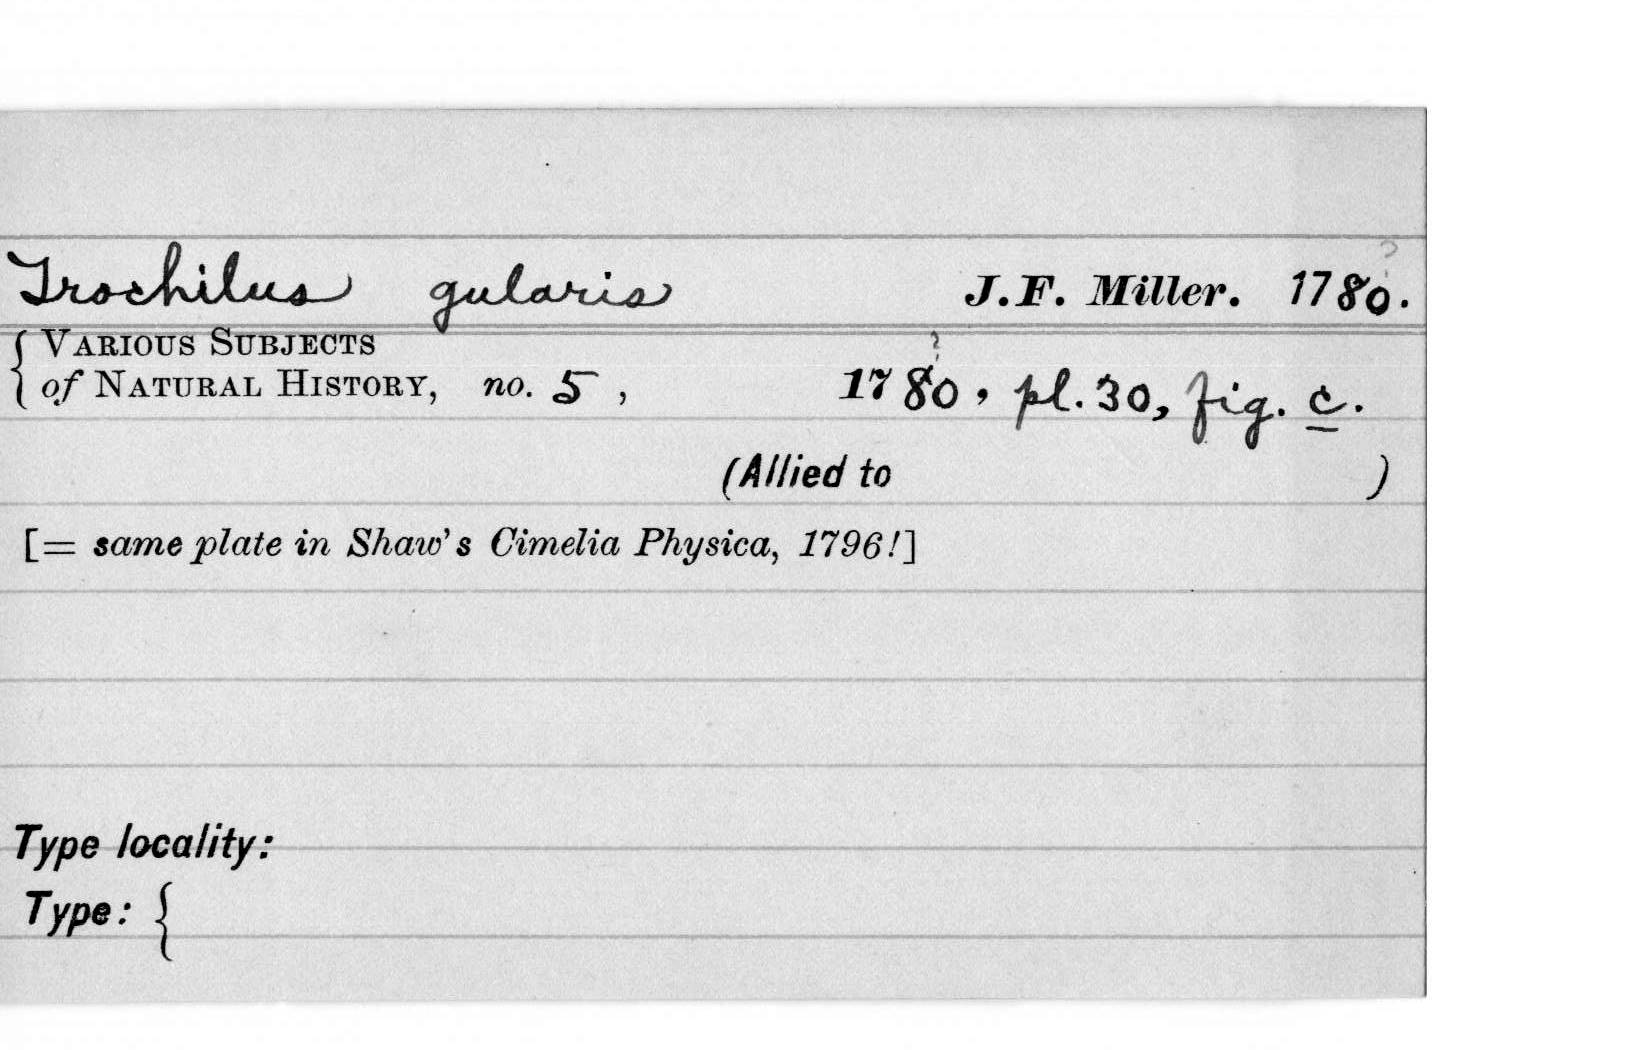 Trochilus gularis J.F. Miller. 1780?.
{ VARIOUS SUBJECTS
of NATURAL HISTORY, no. 5, 1780?, pl. 30, fig. c.
(Allied to )
[= same plate in Shaw's Cimelia Physica, 1796!]
Type locality:
Type: {